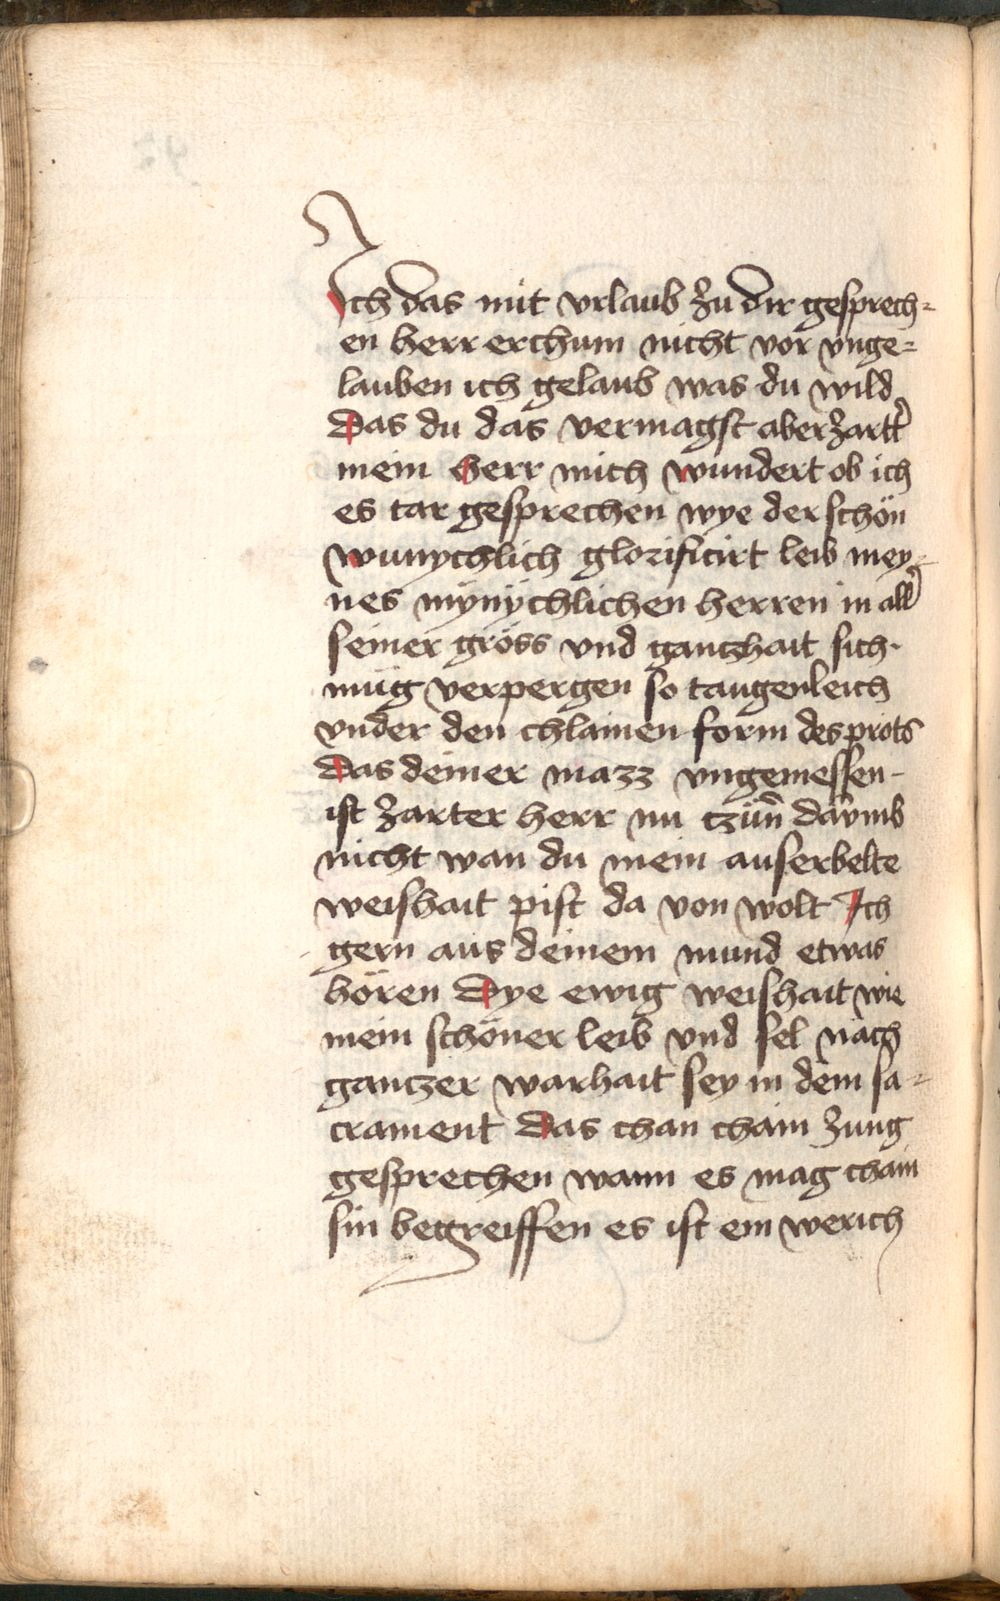 Ich das mit vrlaub zu dir gesprech=
en herr erchum nicht vor vnge=
lauben ich gelaub was du wild
Das du das vermagst aber zartt̉
mein herr mich wundert ob ich
es tar gesprechen wye der schön
wunychlich glorificirt leib mey=
nes mÿnÿchlichen herren in all̉
seiner gröss vnd ganczhait sich
müg verpergen so taugenleich
vnder den chlainen form des prots
Das deiner mazz vngemessen
ist zarter herr nu czürn̄ darvmb
nicht wan du mein auserbelte
weishait pist da von wolt Ich
gern aus deinem mund etwas
hören Dye ewig weishait wie
mein schöner leib vnd sel nach
ganczer warhait sey in dem sa=
crament Das chan chain zung
gesprechen wann es mag chain
sin begreiffen es ist ein werich